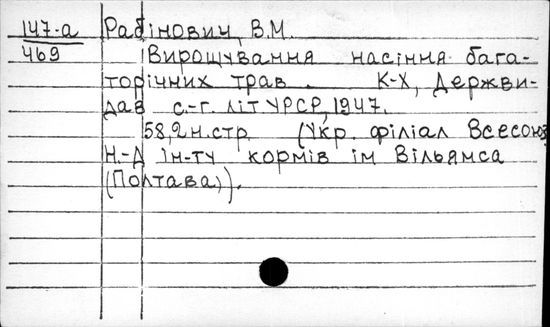 147-а Рабінович, В.М.
469 Вирощування насіння бага-
торічних трав. К-Х, Держви-
дав с.-г. літ УРСР, 1947.
58,2н.стр. (Укр. філіал Всесоюз
Н.-Д ін-ту кормів ім Вільямса
(Полтава)).